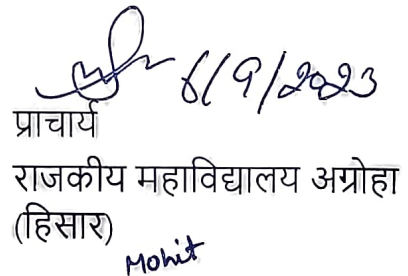 6/9/2023
प्राचार्य
राजकीय महाविद्यालय अग्रोहा
(हिसार)
Mohit